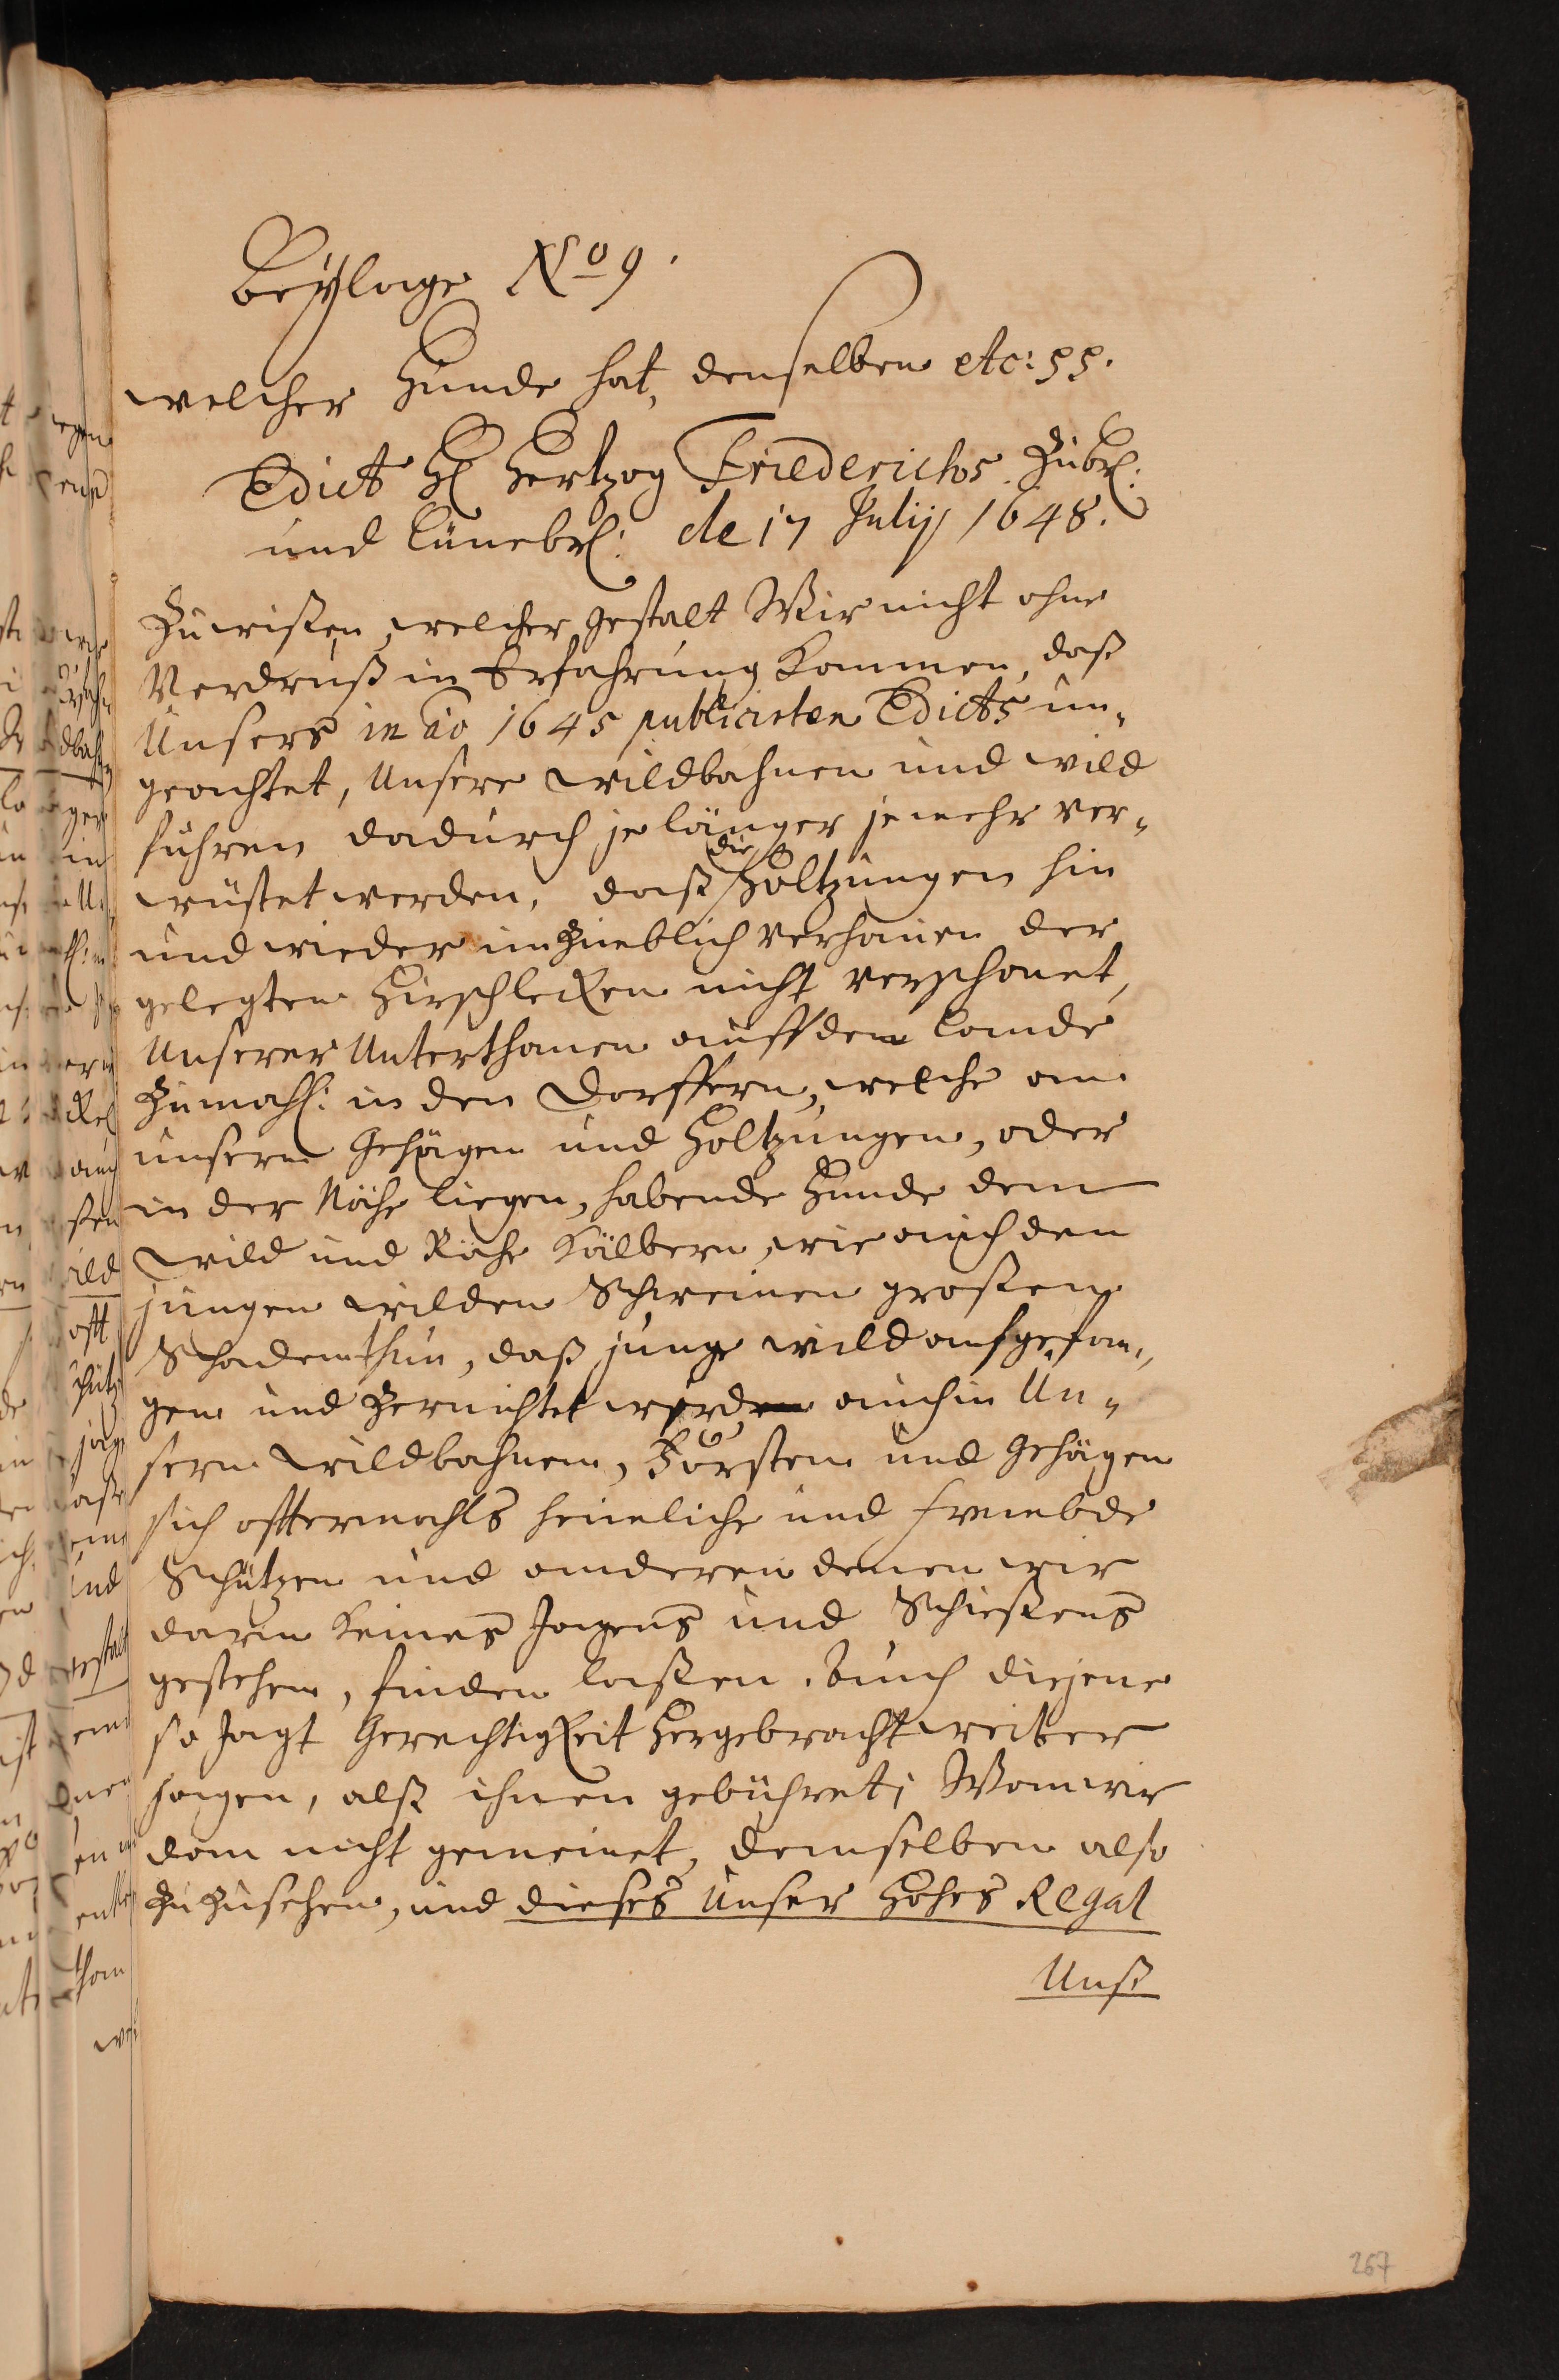 Beÿlage No 9.
welcher Hunde hat, denselben etc: pp.
Edict H Hertzog Friederichs zu br:
und Lünebr: de 17 Julij 1648.
Zu wißen, welcher gestalt Wir nicht ohne
Verdruß in Erfahrung kommen, daß
Unsers in ao 1645 publicirten Edicts un„
geachtet, Unsere Wildbahnen und wild
fuhren dadurch je länger je mehr ver„
wüstet werden, daß die Höltzungen hin
und wieder unzieblich verhauen der
gelegten Hirschlecken nicht verschonet,
Unserer Unterthanen auff dem Lande
zumahl: in den Dorffern, welche an
unsern Gehägen und Höltzungen, oder
in der Nähe liegen, habende Hunde dem
Wild und Röhe Kälbern, wie auch den
jungen wilden Schweinen großen
Schaden thun, daß junge wild aufgefan„
gen und zernichtet werde auch in Un„
sern Wildbahnen, Försten und Gehägen
sich offtermahls heimliche und frembde
Schützen und anderen denen wir
darin keines Jagens und Schießens
gestehen, finden laßen. Auch diejene
so Jagt Gerechtigkeit hergebracht weiter
Jagen, alß ihnen gebühret; Wann wir
dan nicht gemeinet, demselben also
zuzusehen, und dieses Unser Hohes Regal
Unß
267